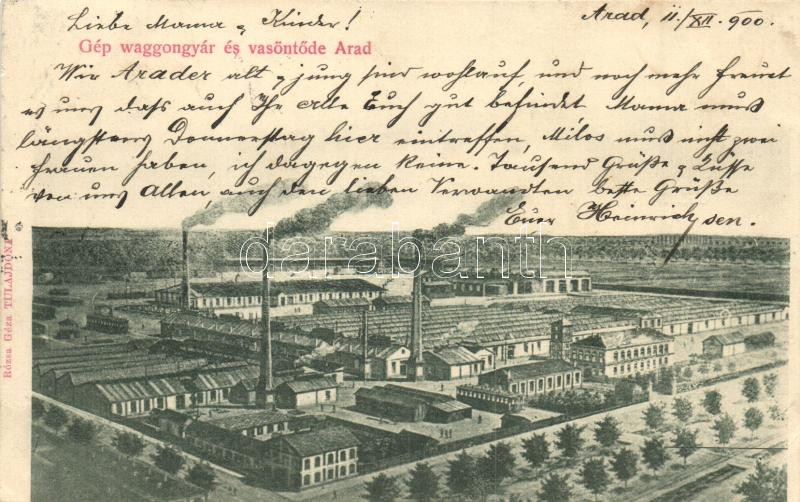 Liebe Mama & Kinder!
Arad, 11./XII. 900.
Gép waggongyár és vasöntőde Arad
Wir Arader alt & jung sind wohlauf und noch mehr freuet
es uns daſs auch Ihr alle Euch gut befindet. Mama muß
längstens Donnerstag hier eintreffen, Milos muß nicht zwei
Frauen haben, ich dagegen keine. Tausend Grüße & Küsse
von uns Allen, auch den lieben Verwandten beste Grüße
Euer Heinrich sen.
Rózsa Géza TULAJDONA
darabanth